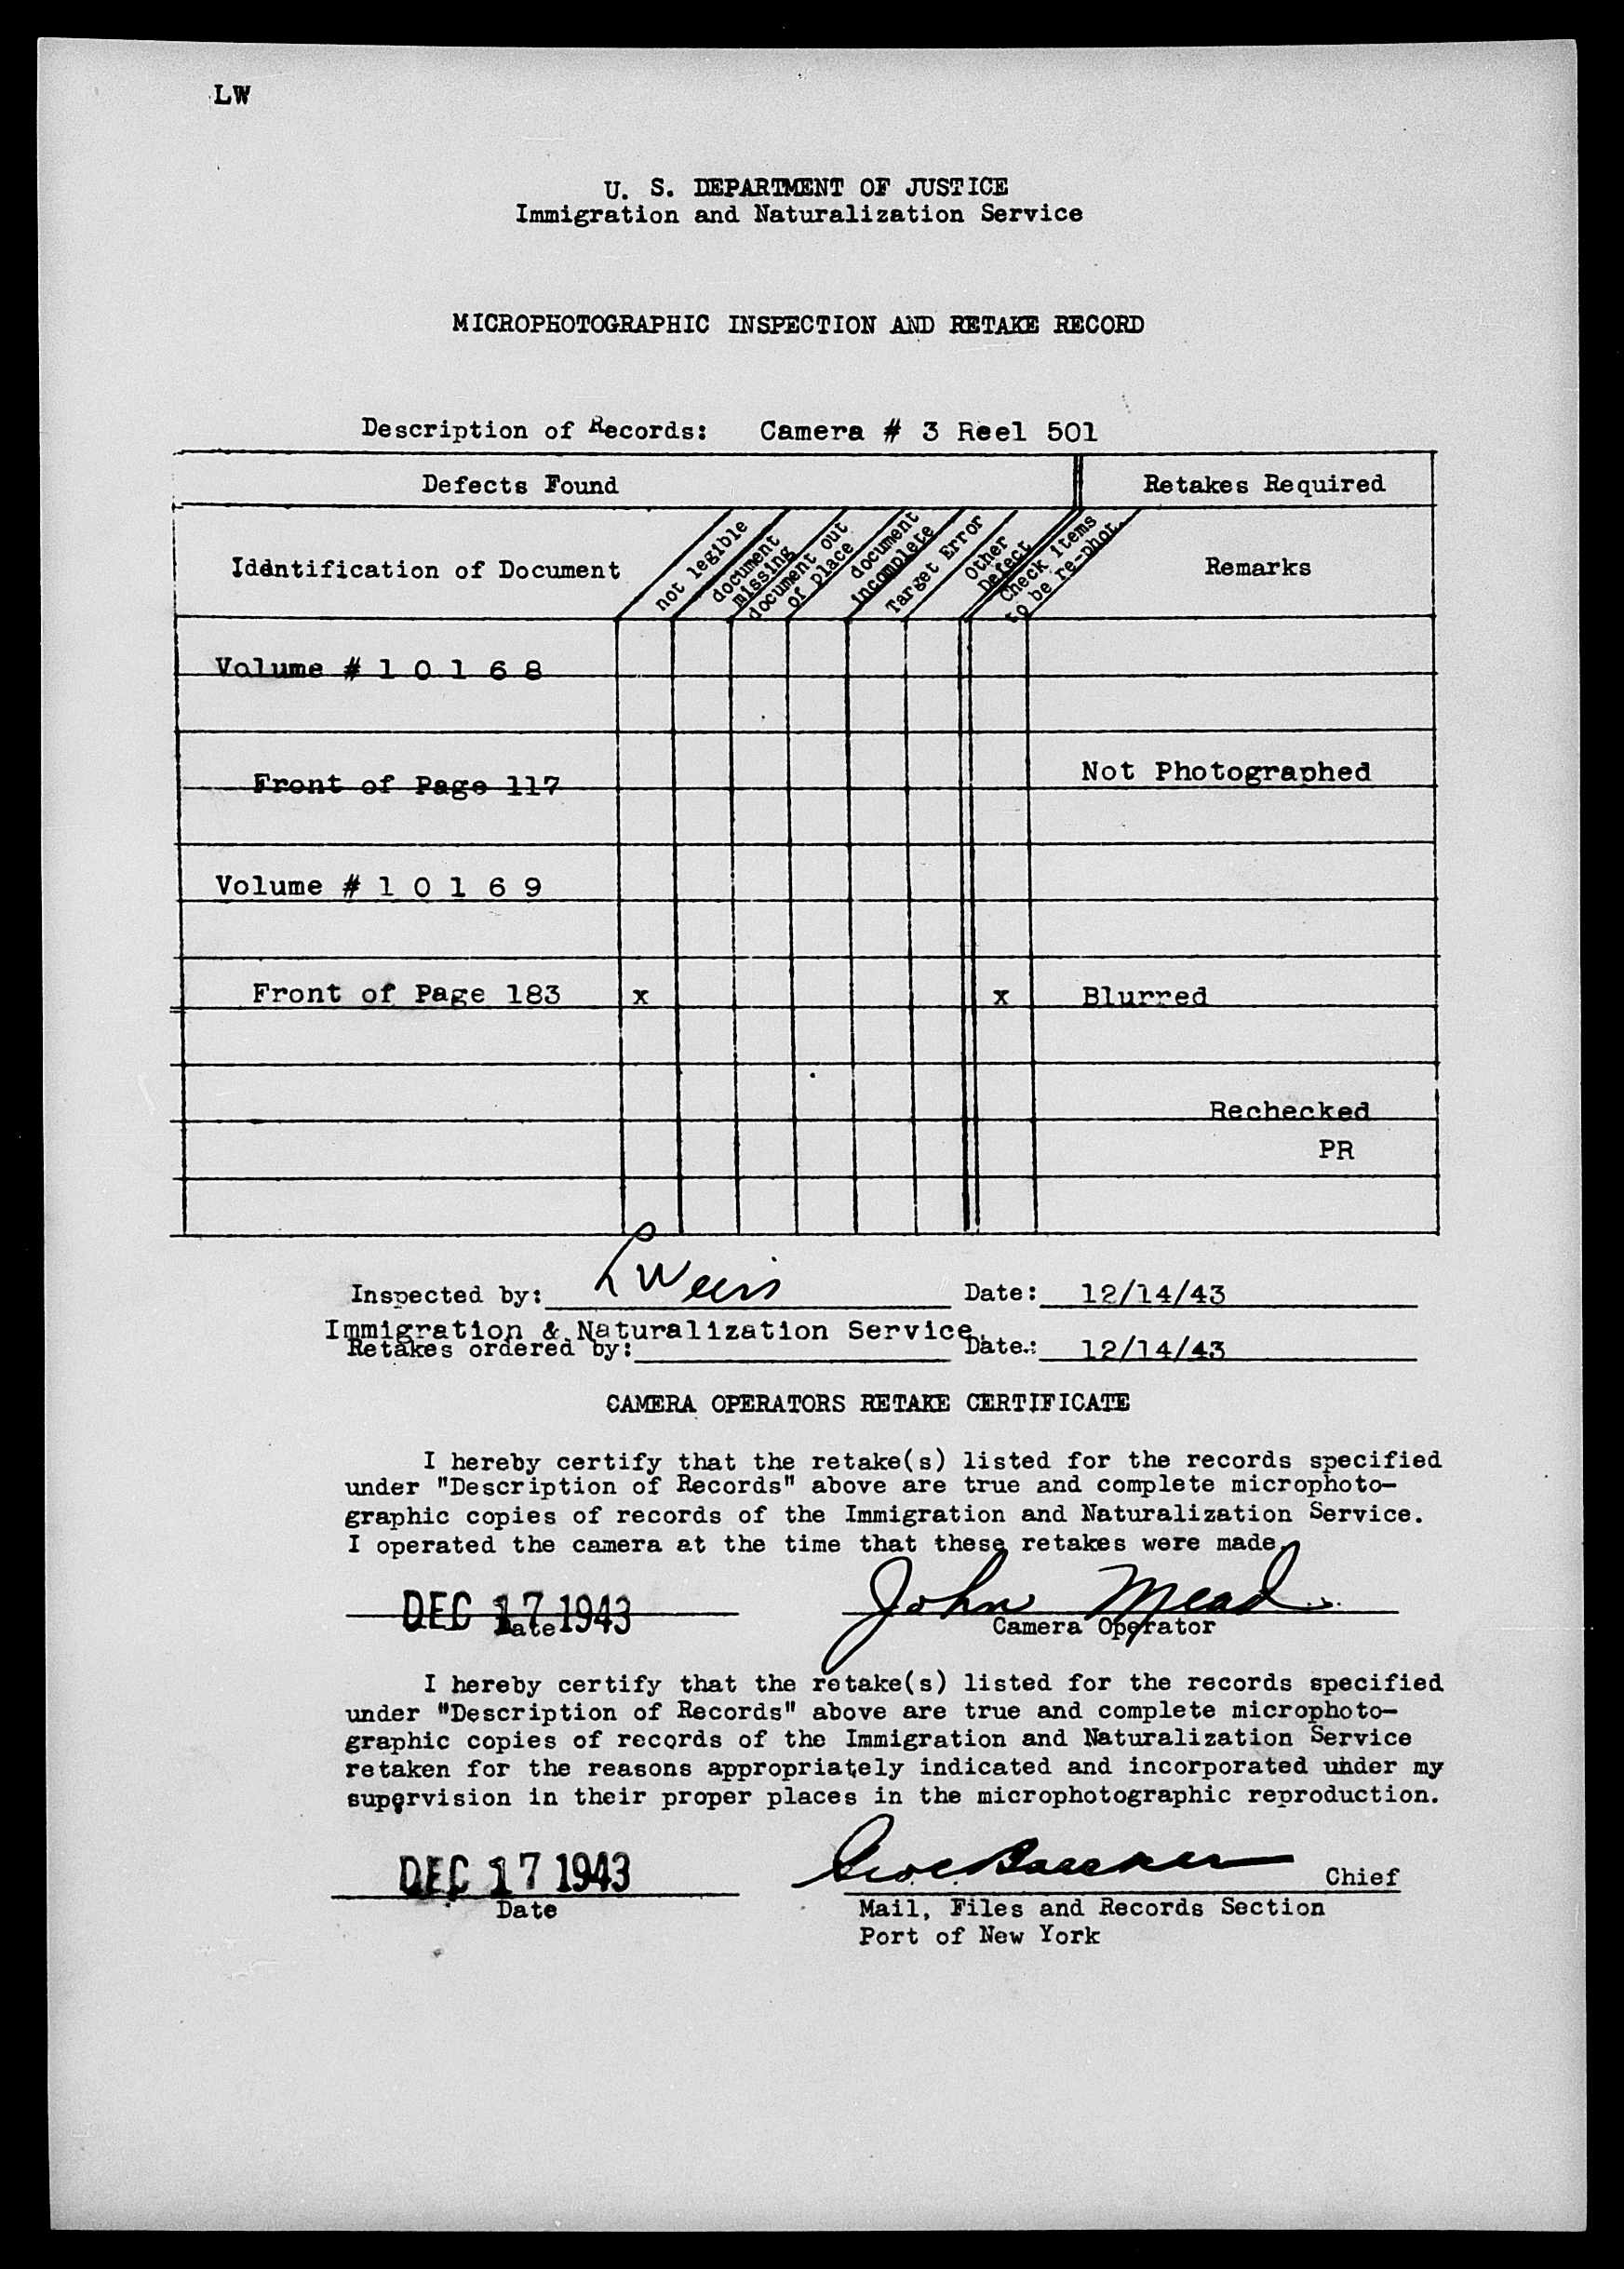 LW
U. S. DEPARTMENT OF JUSTICE
Immigration and Naturalization Service
MICROPHOTOGRAPHIC INSPECTION AND RETAKE RECORD
Description of Records: Camera # 3 Reel 501
Defects Found
Retakes Required
Identification of Document
not legible
document
missing
document out
of place
document
incomplete
Target Error
Other
Defect
Check items
to be re-phot.
Remarks
Volume # 1 0 1 6 8
Front of Page 117 Not Photographed
Volume # 1 0 1 6 9
Front of Page 183 x x Blurred
Rechecked
PR
Inspected by: L Weiss Date: 12/14/43
Immigration & Naturalization Service.
Retakes ordered by: Date: 12/14/43
CAMERA OPERATORS RETAKE CERTIFICATE
I hereby certify that the retake(s) listed for the records specified
under "Description of Records" above are true and complete microphoto-
graphic copies of records of the Immigration and Naturalization Service.
I operated the camera at the time that these retakes were made.
DEC 17 1943 John Mead
Date Camera Operator
I hereby certify that the retake(s) listed for the records specified
under "Description of Records" above are true and complete microphoto-
graphic copies of records of the Immigration and Naturalization Service
retaken for the reasons appropriately indicated and incorporated under my
supervision in their proper places in the microphotographic reproduction.
DEC 17 1943 Chief
Date Mail, Files and Records Section
Port of New York